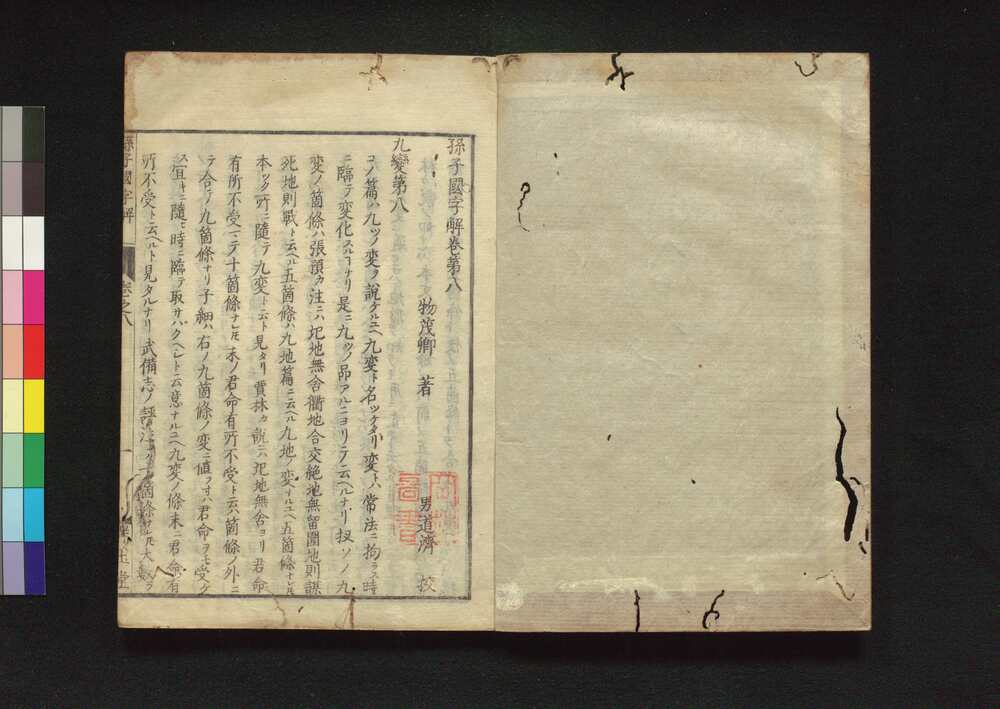 孫子國字解卷第八
物茂卿 著
男道濟 校
九變第八
コノ篇ハ九ツノ変ヲ説ケルユヘ九変ト名ツケタリ変トハ常法ニ拘ラス時
ニ臨テ変化スルコトナリ是ニ九ツノ品アルニヨリテ云ヘルナリ扨ソノ九
変ノ箇條ハ張預カ注ニハ圮地無舍衢地合交絶地無留圍地則謀
死地則戰ト云ヘル五箇條ハ九地篇ニ云ヘル九地ノ変ナルユヘ五箇條ナレ𪜈
本ツク所ニ隨テ九変ト云ト見タリ賈林カ説ニハ圮地無舍ヨリ君命
有所不受マテ十箇條ナレ𪜈末ノ君命有所不受ト云ハ箇條ノ外ニ
テ合テ九箇條ナリ子細ハ右ノ九箇條ノ変ニ値フ寸ハ君命ヲモ受ケ
ス宜キニ隨ヒ時ニ臨テ取サバクヘシト云意ナルユヘ九変ノ條末ニ君命有
所不受ト云ヘルト見タルナリ武備志ノ
孫子國字解
卷之八